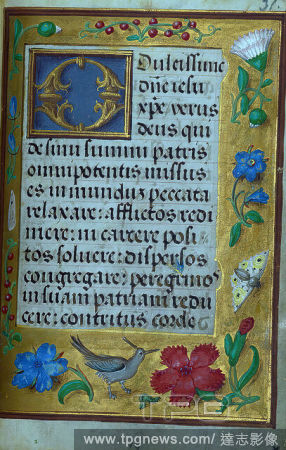 37
O Dulcissime
dñe iesu
xp̃e verus
deus qui
de sinu summi patris
omnipotentis missus
es in mundũ peccata
relaxare: afflictos redi
mere: in carcere posi
tos soluere: dispersos
congregare: peregrinos
in suam patriam redu
cere: contritus corde
TPG
www.tpgnews.com/ 達志影像